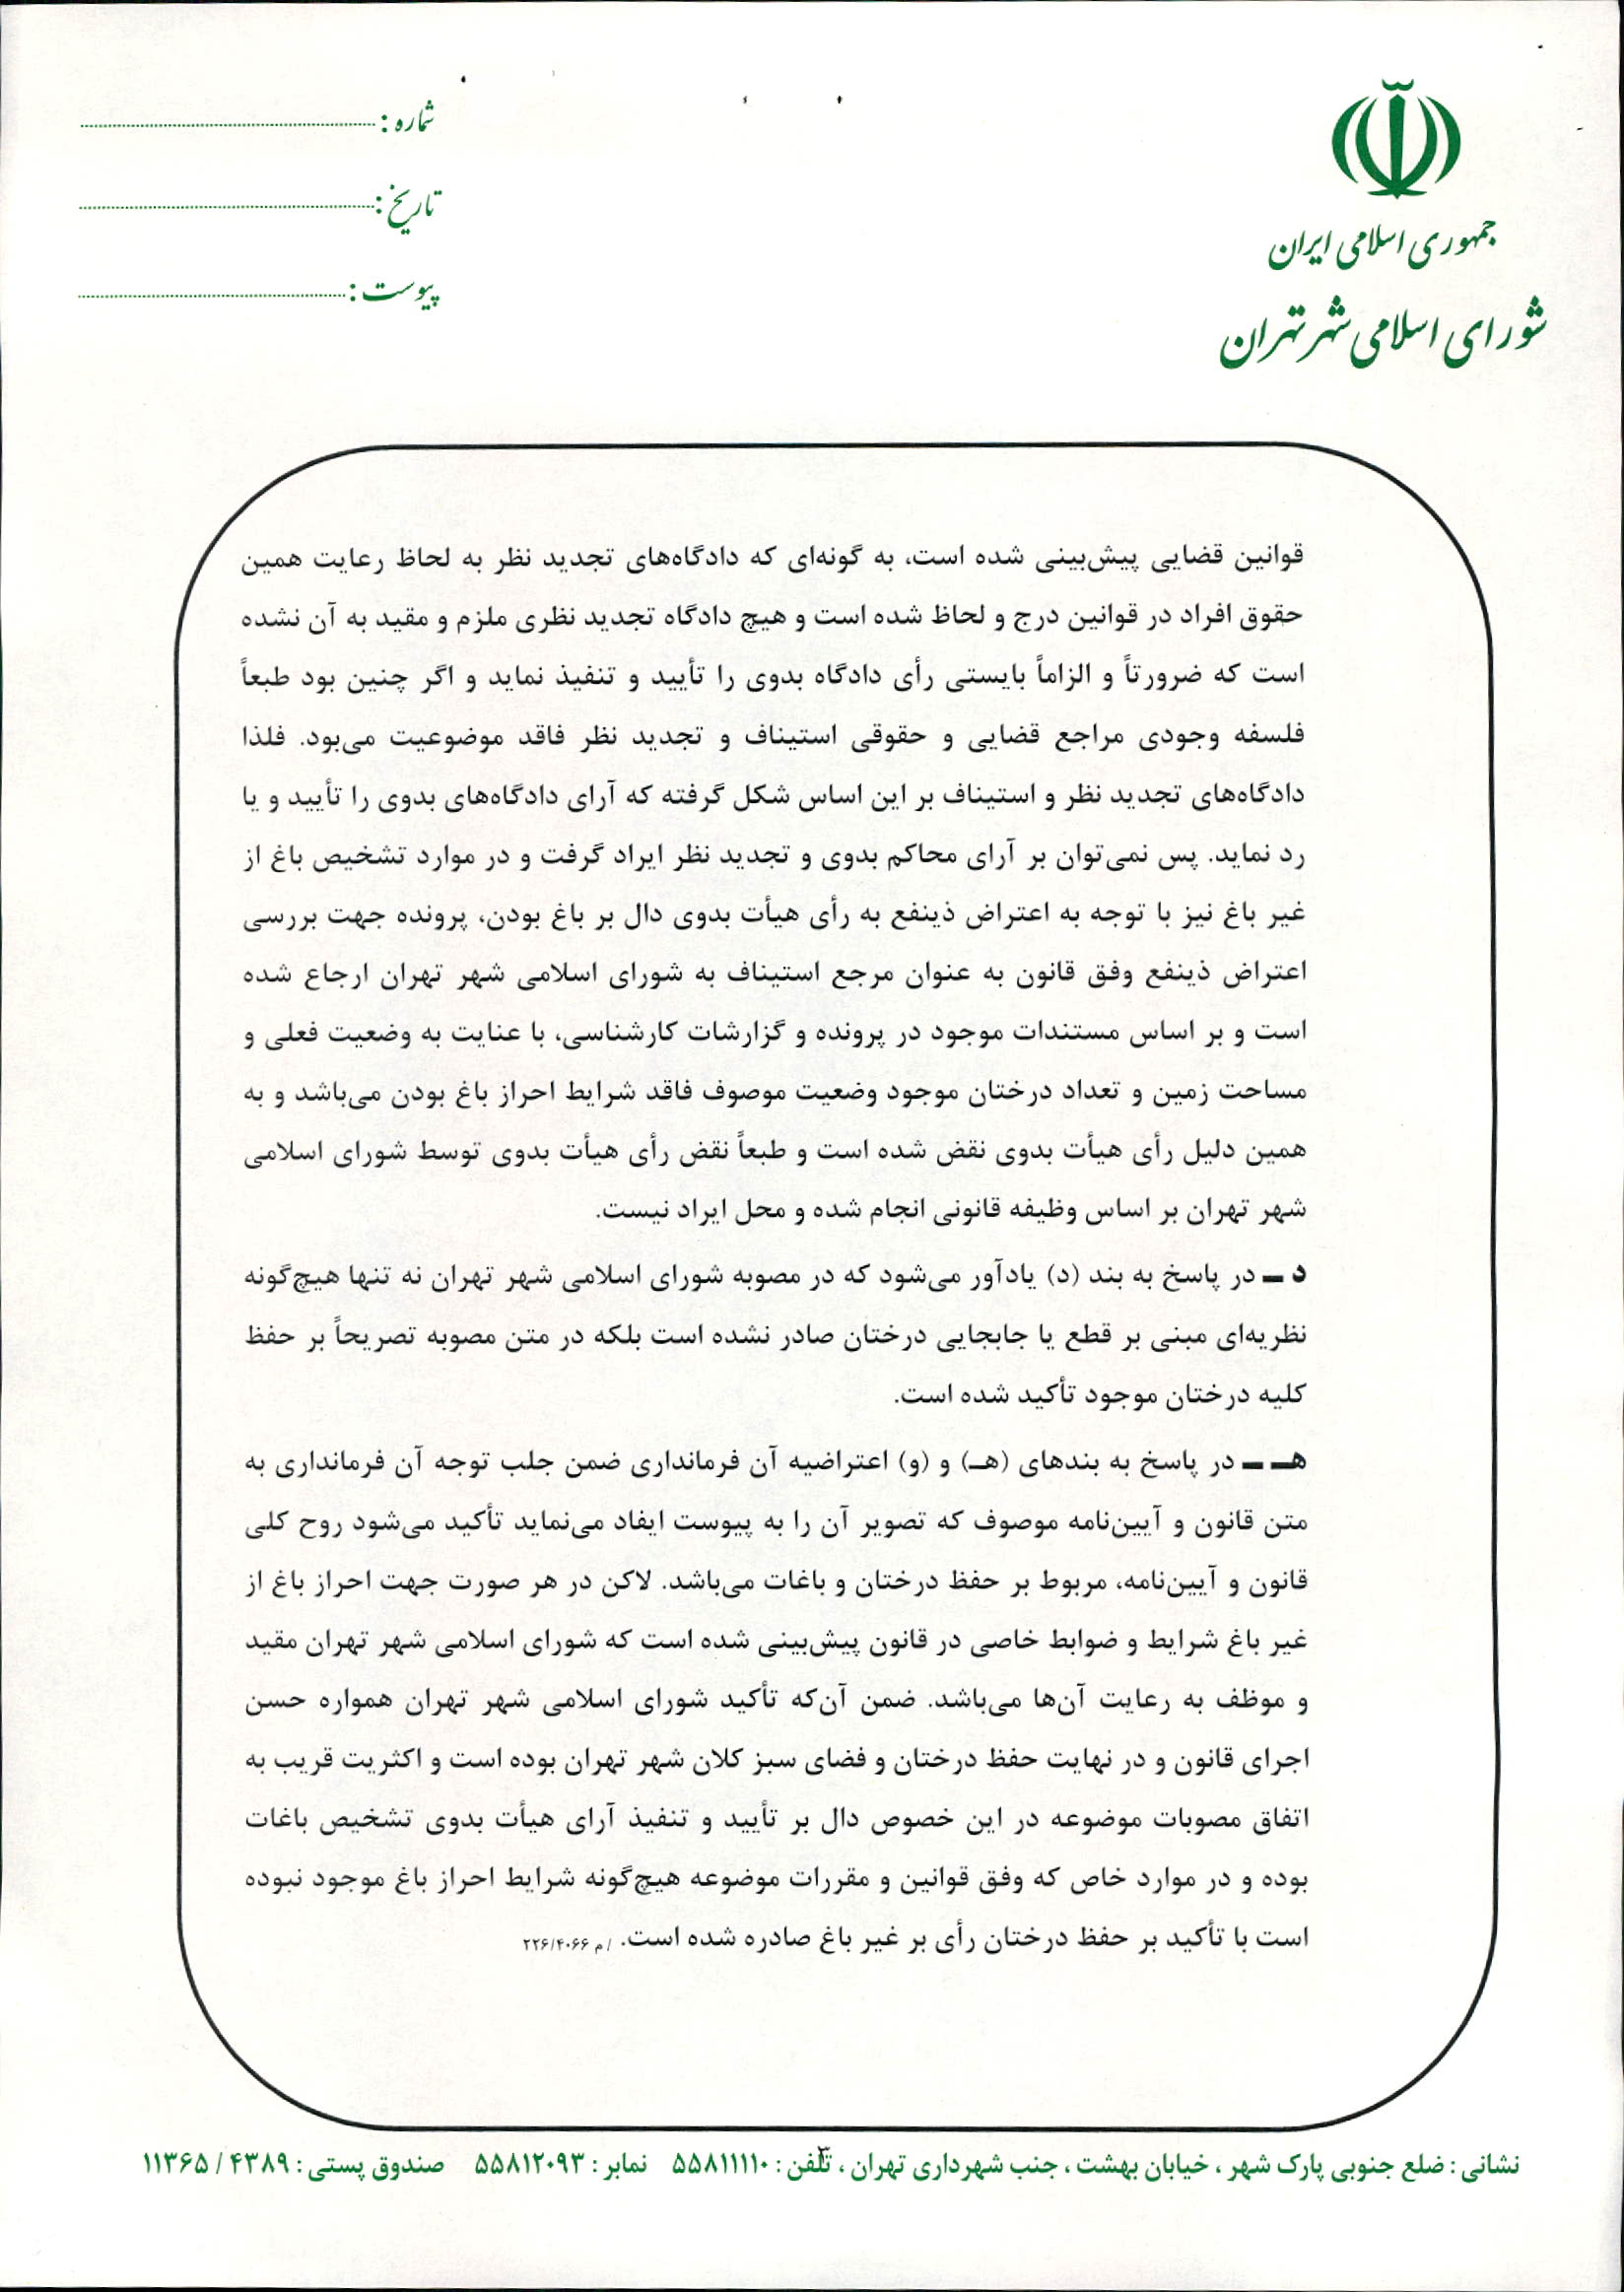 شماره :
تاریخ :
پیوست :
جمهوری اسلامی ایران
شورای اسلامی شهر تهران
قوانین قضایی پیش‌بینی شده است، به گونه‌ای که دادگاه‌های تجدید نظر به لحاظ رعایت همین
حقوق افراد در قوانین درج و لحاظ شده است و هیچ دادگاه تجدید نظری ملزم و مقید به آن نشده
است که ضرورتاً و الزاماً بایستی رأی دادگاه بدوی را تأیید و تنفیذ نماید و اگر چنین بود طبعاً
فلسفه وجودی مراجع قضایی و حقوقی استیناف و تجدید نظر فاقد موضوعیت می‌بود. فلذا
دادگاه‌های تجدید نظر و استیناف بر این اساس شکل گرفته که آرای دادگاه‌های بدوی را تأیید و یا
رد نماید. پس نمی‌توان بر آرای محاکم بدوی و تجدید نظر ایراد گرفت و در موارد تشخیص باغ از
غیر باغ نیز با توجه به اعتراض ذینفع به رأی هیأت بدوی دال بر باغ بودن، پرونده جهت بررسی
اعتراض ذینفع وفق قانون به عنوان مرجع استیناف به شورای اسلامی شهر تهران ارجاع شده
است و بر اساس مستندات موجود در پرونده و گزارشات کارشناسی، با عنایت به وضعیت فعلی و
مساحت زمین و تعداد درختان موجود وضعیت موصوف فاقد شرایط احراز باغ بودن می‌باشد و به
همین دلیل رأی هیأت بدوی نقض شده است و طبعاً نقض رأی هیأت بدوی توسط شورای اسلامی
شهر تهران بر اساس وظیفه قانونی انجام شده و محل ایراد نیست.
د ـ در پاسخ به بند (د) یادآور می‌شود که در مصوبه شورای اسلامی شهر تهران نه تنها هیچ‌گونه
نظریه‌ای مبنی بر قطع یا جابجایی درختان صادر نشده است بلکه در متن مصوبه تصریحاً بر حفظ
کلیه درختان موجود تأکید شده است.
هـ ـ در پاسخ به بندهای (هـ) و (و) اعتراضیه آن فرمانداری ضمن جلب توجه آن فرمانداری به
متن قانون و آیین‌نامه موصوف که تصویر آن را به پیوست ایفاد می‌نماید تأکید می‌شود روح کلی
قانون و آیین‌نامه، مربوط بر حفظ درختان و باغات می‌باشد. لاکن در هر صورت جهت احراز باغ از
غیر باغ شرایط و ضوابط خاصی در قانون پیش‌بینی شده است که شورای اسلامی شهر تهران مقید
و موظف به رعایت آن‌ها می‌باشد. ضمن آن‌که تأکید شورای اسلامی شهر تهران همواره حسن
اجرای قانون و در نهایت حفظ درختان و فضای سبز کلان شهر تهران بوده است و اکثریت قریب به
اتفاق مصوبات موضوعه در این خصوص دال بر تأیید و تنفیذ آرای هیأت بدوی تشخیص باغات
بوده و در موارد خاص که وفق قوانین و مقررات موضوعه هیچ‌گونه شرایط احراز باغ موجود نبوده
است با تأکید بر حفظ درختان رأی بر غیر باغ صادره شده است. /م ۲۲۶/۴۰۶۶
۳
نشانی : ضلع جنوبی پارک شهر ، خیابان بهشت ، جنب شهرداری تهران ، تلفن : ۵۵۸۱۱۱۱۰ نمابر : ۵۵۸۱۲۰۹۳ صندوق پستی : ۴۳۸۹ / ۱۱۳۶۵